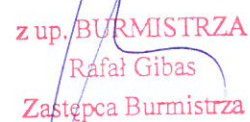 z up. BURMISTRZA
Rafał Gibas
Zastępca Burmistrza